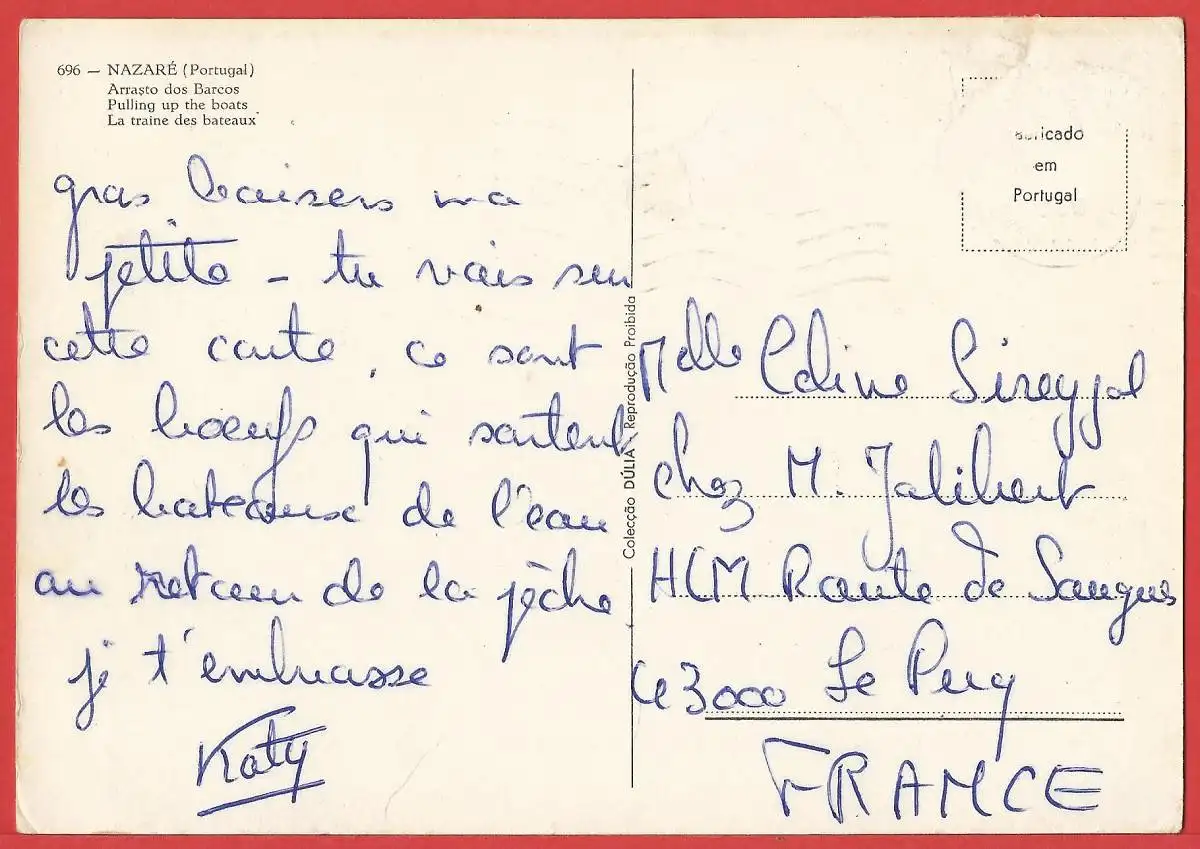 696 — NAZARÉ (Portugal)
Arrasto dos Barcos
Pulling up the boats
La traine des bateaux
gros baisers ma
petite - tu vois sur
cette carte, ce sont
les boeufs qui sortent
les bateaux de l'eau
au retour de la pêche
je t'embrasse
Katy
Colecção DÚLIA - Reprodução Proibida
em
Portugal
Melle Céline
chez M. Jalibert
HLM Route de Saugues
43000 Le Puy
FRANCE